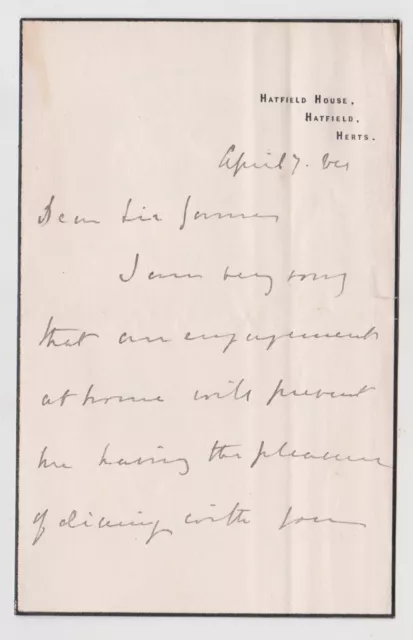 HATFIELD HOUSE,
HATFIELD.
HERTS.
April 7.
Dear Sir James
I am very sorry
that an engagement
at home will prevent
me having the pleasure
of dining with you